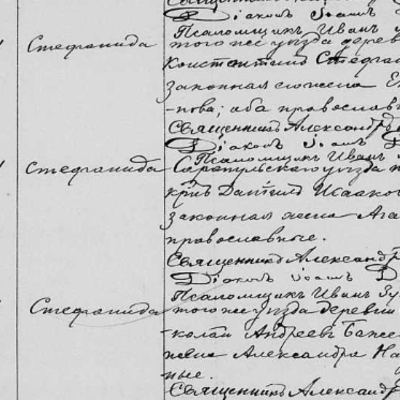 Священникъ
Діаконъ Іоаннъ
Псаломщикъ Иванъ
Стефанида
того же уѣзда дерев
Константинъ Стефан
законная
-пова; оба православ
Священникъ Александръ
Діаконъ Іоаннъ
Псаломщикъ Иванъ
Стефанида
Сарапульскаго уѣзда
Даніилъ Исааков
законная жена Ага
православные.
Священникъ Александръ
Діаконъ Іоаннъ
Псаломщикъ Иванъ Зу
Стефанида
того же уѣзда деревни
-колай Андреевъ
Александра На
ные.
Священникъ Александръ